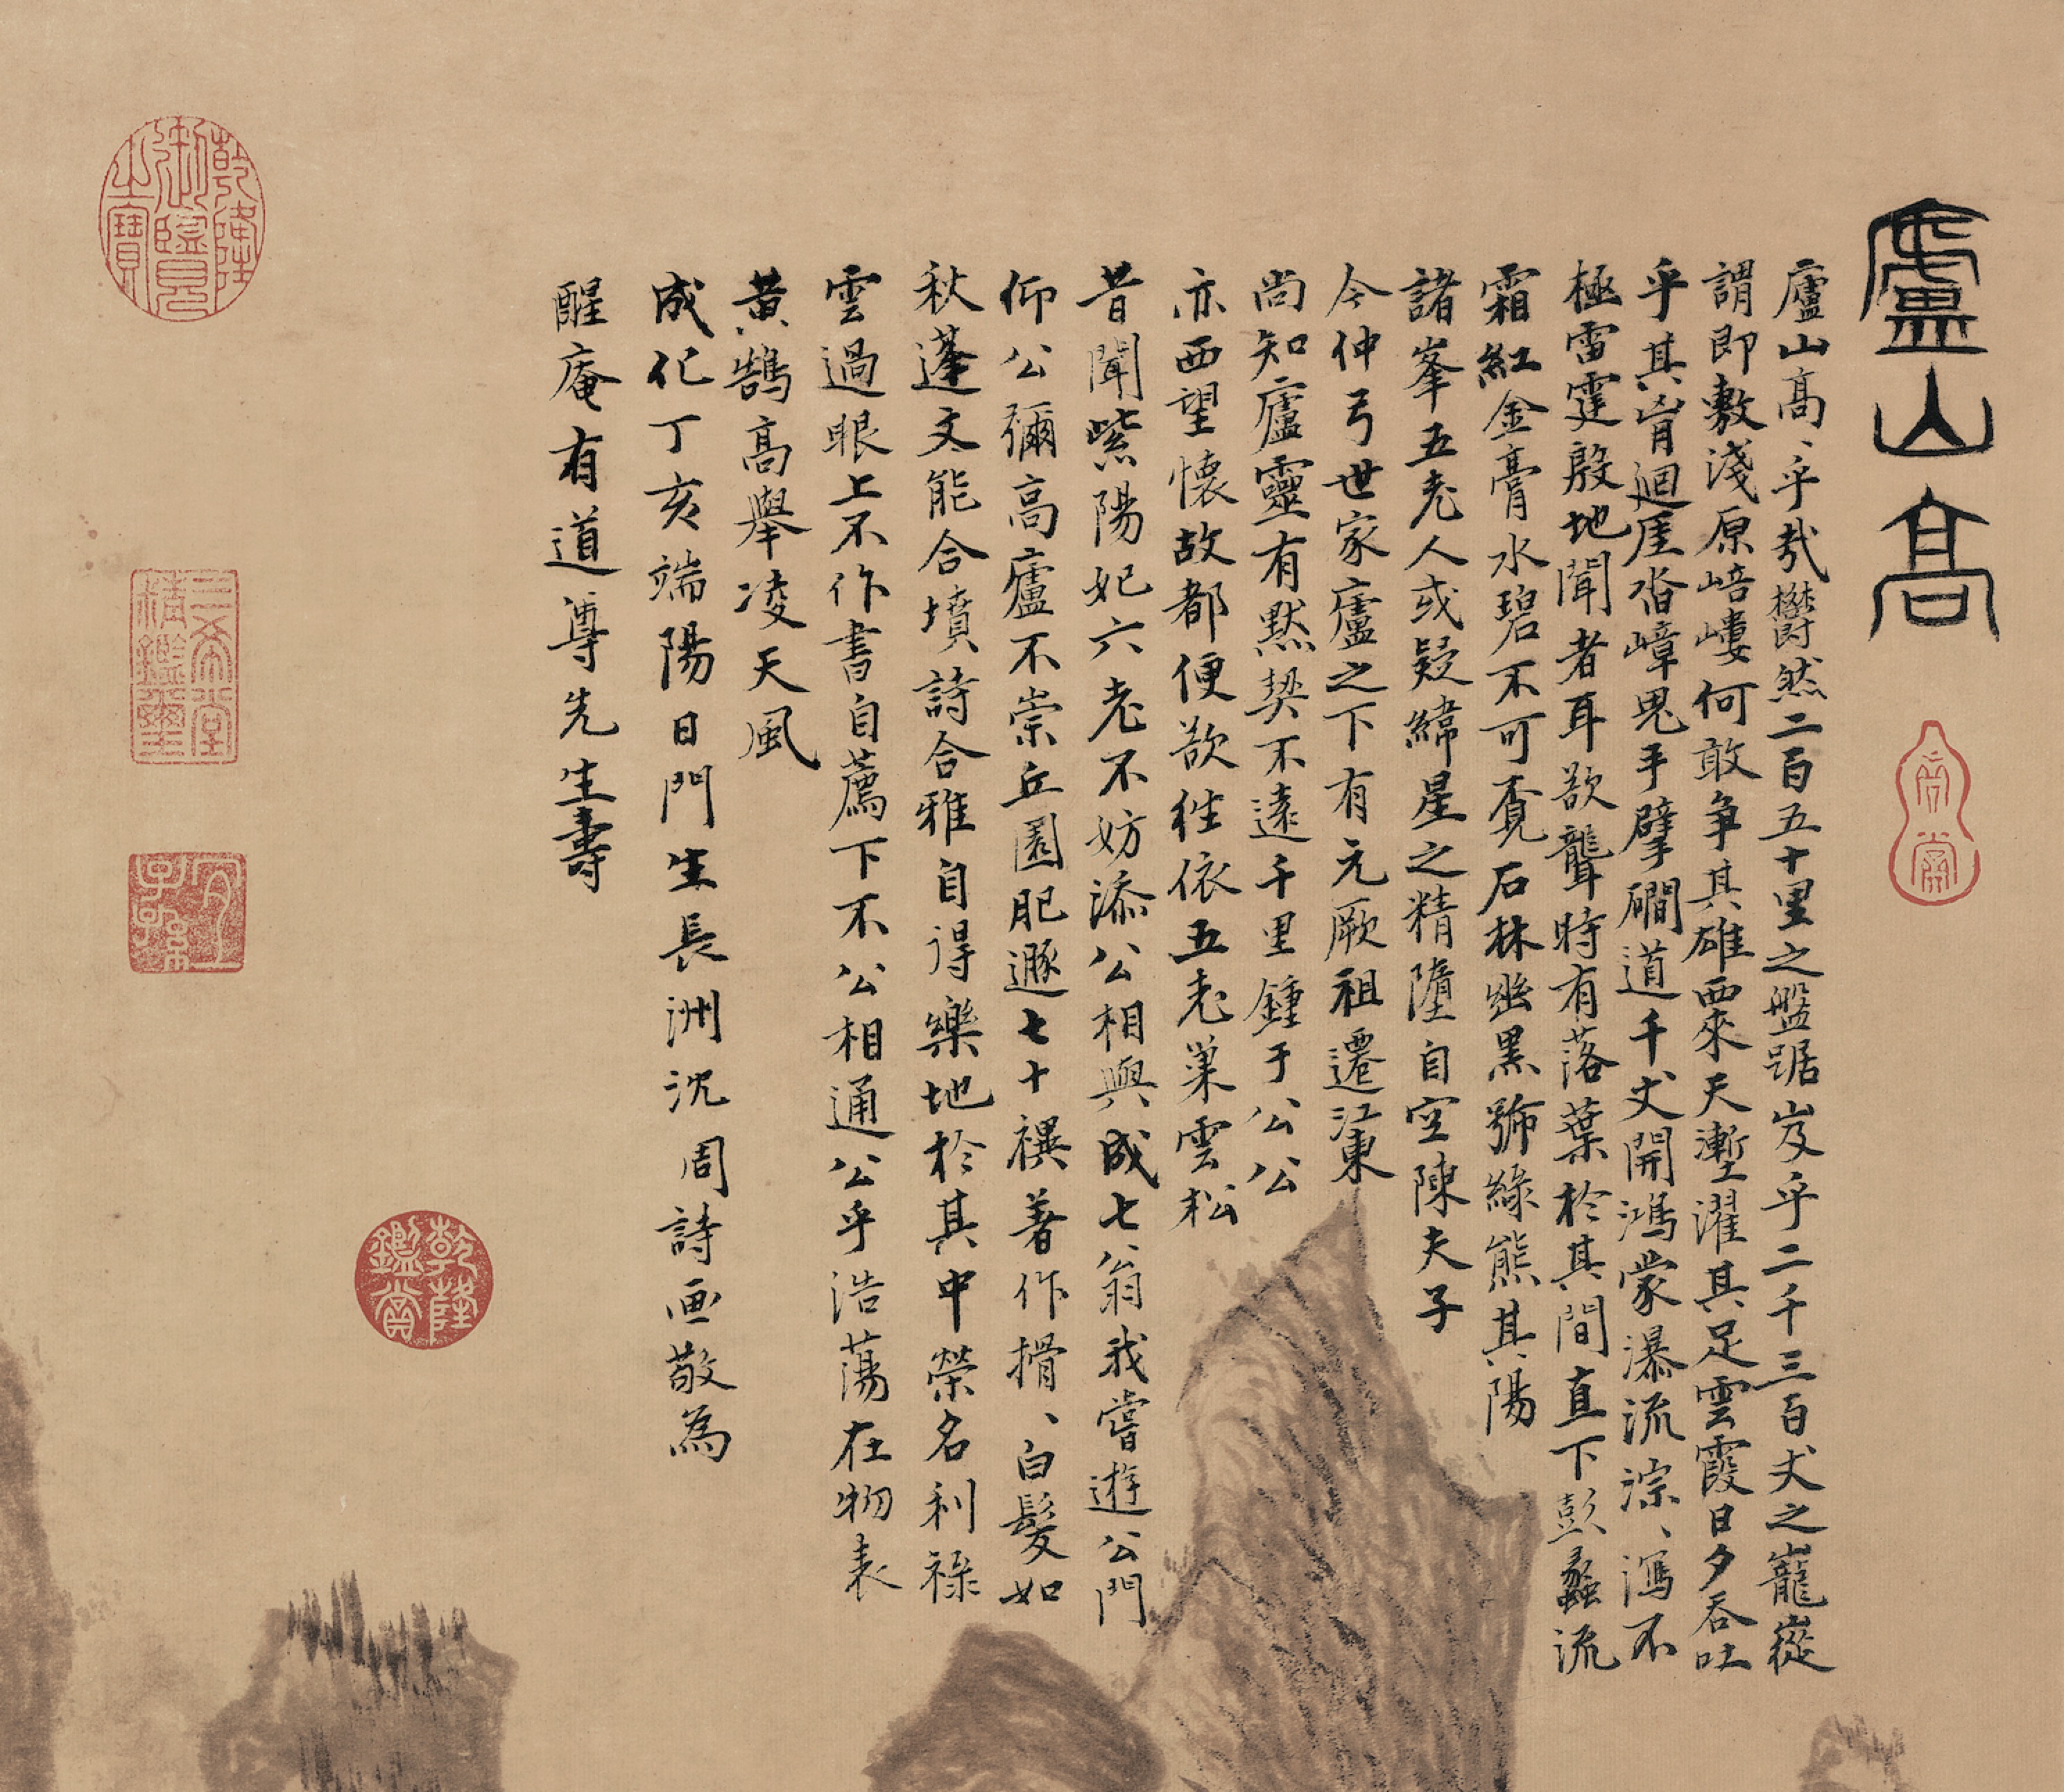 廬山高
廬山高、乎哉欝然二百五十里之盤踞岌乎二千三百丈之巃嵷
謂即敷淺原㟝嶁何敢争其雄西來天塹濯其足雲霞日夕吞吐
乎其胷廻厓沓嶂鬼手擘磵道千丈開鴻蒙瀑流淙、瀉不
極雷霆殷地聞者耳欲聾時有落葉於其間直下彭蠡流
霜紅金膏水碧不可覔石林幽黑號綠熊其陽
諸峯五老人或疑緯星之精墮自空陳夫子
今仲弓世家廬之下有元厥祖遷江東
尚知廬靈有默契不遠千里鍾于公公
亦西望懷故都便欲徃依五老巢雲松
昔聞紫陽妃六老不妨添公相與成七翁我嘗遊公門
仰公彌高廬不崇丘園肥遯七十禩著作搰、白髮如
秋蓬文能合墳詩合雅自得樂地於其中榮名利祿
雲過眼上不作書自薦下不公相通公乎浩蕩在物表
黃鵠高舉凌天風
成化丁亥端陽日門生長洲沈周詩画敬為
醒庵有道尊先生壽
乾隆
御覽
之寶
三希堂
精鑑璽
宜
子孫
乾隆
鑑賞